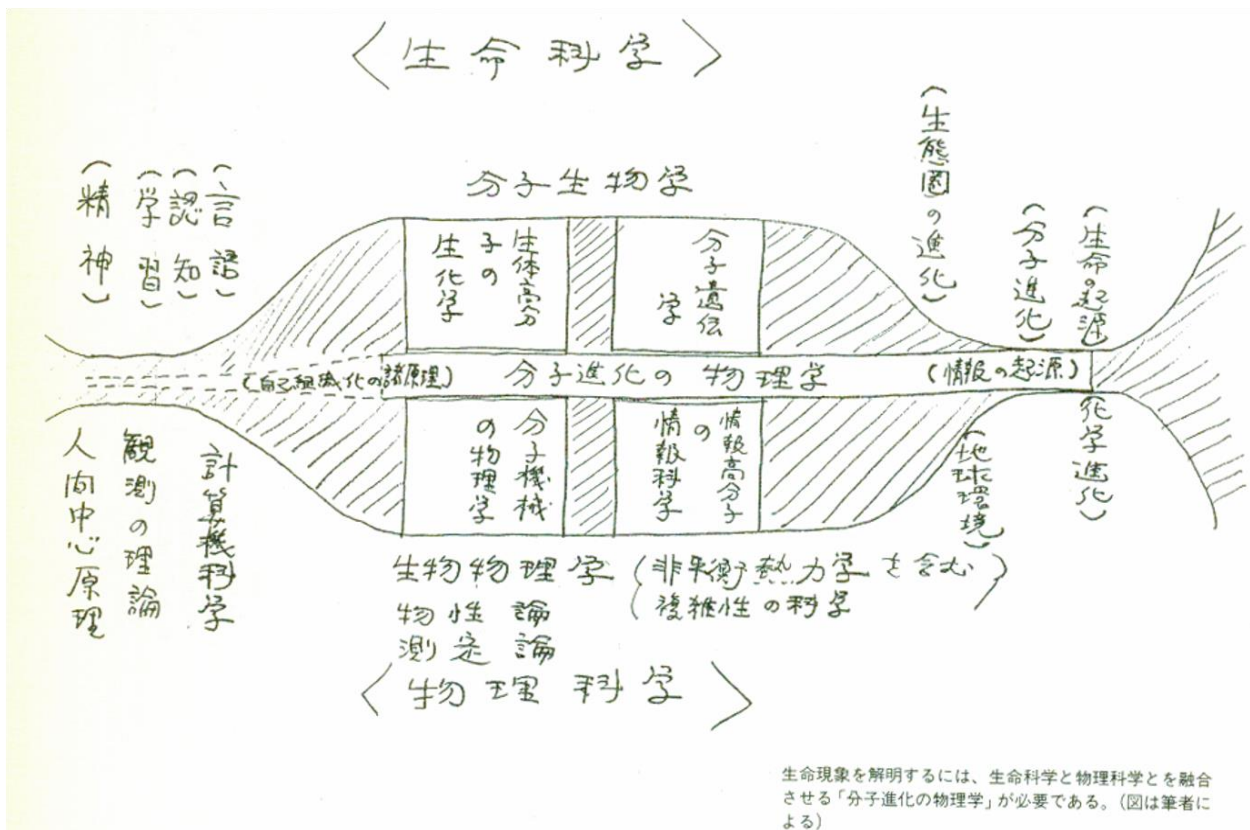 〈生命科学〉
分子生物学
(精神)
(学習)
(認知)
(言語)
生体高分
子の
生化学
分子遺伝
学
(生態圏の進化)
(分子進化)
(生命の起源)
(自己組織化の諸原理)
分子進化の物理学
(情報の起源)
人間中心原理
観測の理論
計算機科学
分子機械
の物理学
情報高分子
の
情報科学
(地球環境)
化学進化)
生物物理学
(非平衡熱力学を含む
複雑性の科学)
物性論
測定論
〈物理科学〉
生命現象を解明するには、生命科学と物理科学とを融合
させる「分子進化の物理学」が必要である。(図は筆者に
よる)